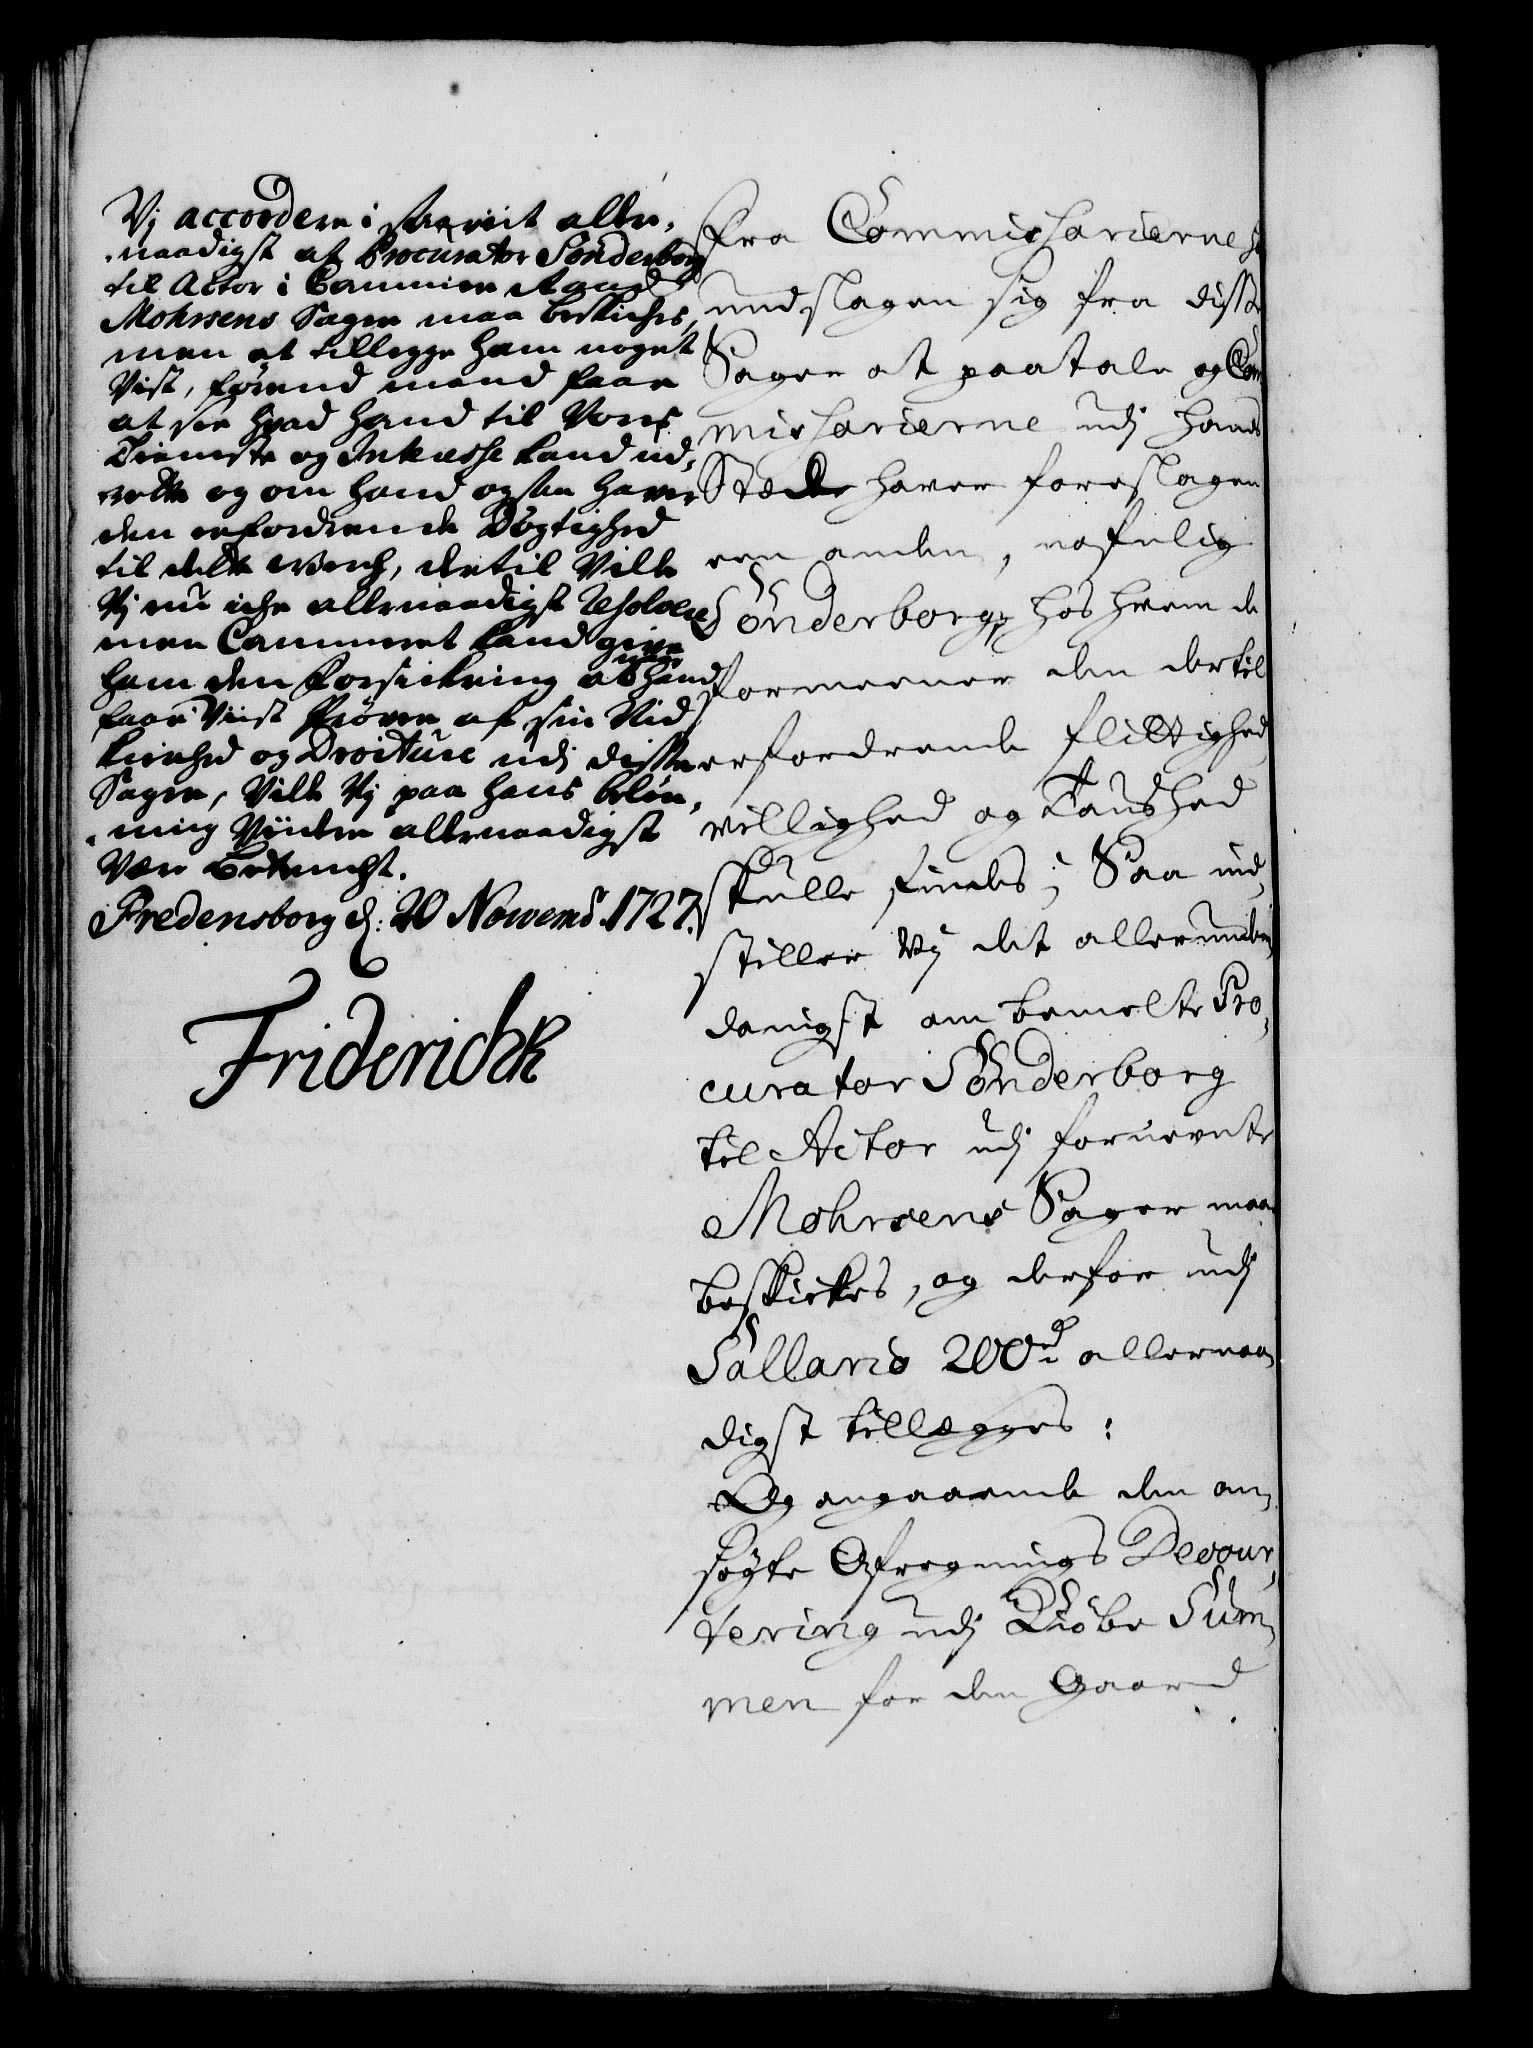 Vj accordere i saa viit aller,
naadigst at Procurator Sönderborg
til Actor i Cammer Raad
Mohrsens Sager maa beskickes,
men at tillegge ham noget
Vist, förend mand faar
at see hvad hand til Vores
Tieneste og Interesse kand ud,
rette og om hand ogsaa haver
den erfordrende Dögtighed
til dette Werch, dertil Ville
Vj nu iche allernaadigst Resolvere
men Cammeret kand give
ham den Forsickring at naar hand
faar Viist Pröver af sin Vid
kerhed og Droiture udj disse
Sager, Ville Vj paa hans belön,
ning Viidere allernaadigst
Vær betencht.
Fredensborg d. 20 Novemb. 1727.
Friderich R
fra Commissarierne
undslagen sig fra disse
Sager at paatale og Com
missarierne udj hands
Stæde haver foreslagen
een anden, nafnlig
Sönderborg, hos hvem de
formeener den dertil
erfordrende flittighed
villighed og Taushed
skulle findes; Saa ind,
stiller Vj det allerunder,
danigst om bemelte Pro,
curator Sönderborg
til Actor udj fornevnte
Mohrsens Sager maa
beskickes, og derfor udj
Sallario 200 d. allernaa,
digst tillægges:
Og angaaende den an,
søgte Afregnings Decour,
tering udj Kiöbe Sum,
men for den Gaard